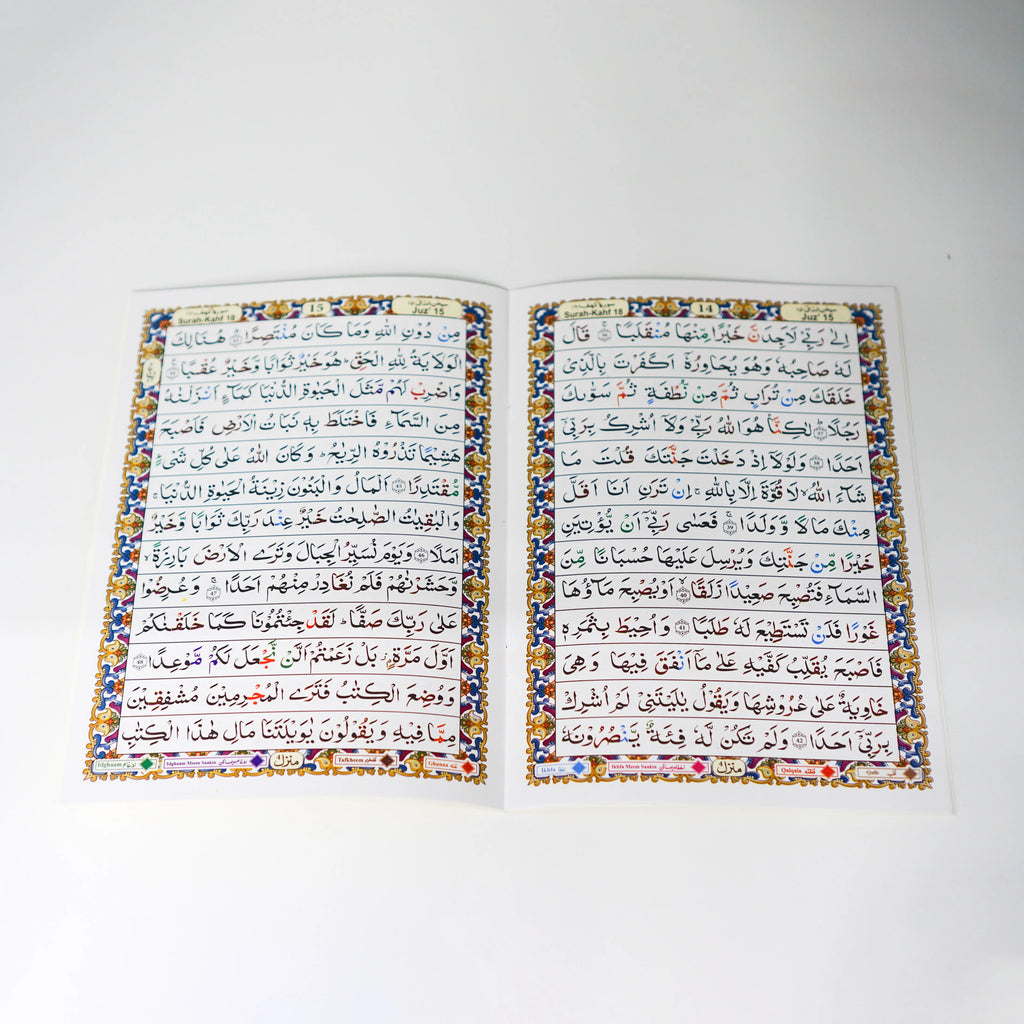 Surah-Kahf 18
14
Juz' 15
اِلٰى رَبِّيْ لَاَجِدَنَّ خَيْرًا مِّنْهَا مُنْقَلَبًا ۚ﴿36﴾ قَالَ
لَهٗ صَاحِبُهٗ وَهُوَ يُحَاوِرُهٗٓ اَكَفَرْتَ بِالَّذِيْ
خَلَقَكَ مِنْ تُرَابٍ ثُمَّ مِنْ نُّطْفَةٍ ثُمَّ سَوّٰىكَ
رَجُلًا ؕ﴿37﴾ لٰكِنَّا۠ هُوَ اللّٰهُ رَبِّيْ وَلَاۤ اُشْرِكُ بِرَبِّيْۤ
اَحَدًا ﴿38﴾ وَلَوْلَاۤ اِذْ دَخَلْتَ جَنَّتَكَ قُلْتَ مَا
شَآءَ اللّٰهُ ۙ لَا قُوَّةَ اِلَّا بِاللّٰهِ ۚ اِنْ تَرَنِ اَنَا اَقَلَّ
مِنْكَ مَالًا وَّوَلَدًا ۚ﴿39﴾ فَعَسٰى رَبِّيْۤ اَنْ يُّؤْتِيَنِ
خَيْرًا مِّنْ جَنَّتِكَ وَيُرْسِلَ عَلَيْهَا حُسْبَانًا مِّنَ
السَّمَآءِ فَتُصْبِحَ صَعِيْدًا زَلَقًا ۙ﴿40﴾ اَوْ يُصْبِحَ مَآؤُهَا
غَوْرًا فَلَنْ تَسْتَطِيْعَ لَهٗ طَلَبًا ﴿41﴾ وَاُحِيْطَ بِثَمَرِهٖ
فَاَصْبَحَ يُقَلِّبُ كَفَّيْهِ عَلٰى مَاۤ اَنْفَقَ فِيْهَا وَهِيَ
خَاوِيَةٌ عَلٰى عُرُوْشِهَا وَيَقُوْلُ يٰلَيْتَنِيْ لَمْ اُشْرِكْ
بِرَبِّيْۤ اَحَدًا ﴿42﴾ وَلَمْ تَكُنْ لَّهٗ فِئَةٌ يَّنْصُرُوْنَهٗ
Ikhfa اخفا Ikhfa Meem Saakin منزل Qalqala قلقله Qalb قلب
Surah-Kahf 18
15
Juz' 15
مِنْ دُوْنِ اللّٰهِ وَمَا كَانَ مُنْتَصِرًا ؕ﴿43﴾ هُنَالِكَ
الْوَلَايَةُ لِلّٰهِ الْحَقِّ ؕ هُوَ خَيْرٌ ثَوَابًا وَّخَيْرٌ عُقْبًا ﴿44﴾
وَاضْرِبْ لَهُمْ مَّثَلَ الْحَيٰوةِ الدُّنْيَا كَمَآءٍ اَنْزَلْنٰهُ
مِنَ السَّمَآءِ فَاخْتَلَطَ بِهٖ نَبَاتُ الْاَرْضِ فَاَصْبَحَ
هَشِيْمًا تَذْرُوْهُ الرِّيٰحُ ؕ وَكَانَ اللّٰهُ عَلٰى كُلِّ شَيْءٍ
مُّقْتَدِرًا ﴿45﴾ اَلْمَالُ وَالْبَنُوْنَ زِيْنَةُ الْحَيٰوةِ الدُّنْيَا ۚ
وَالْبٰقِيٰتُ الصّٰلِحٰتُ خَيْرٌ عِنْدَ رَبِّكَ ثَوَابًا وَّخَيْرٌ
اَمَلًا ﴿46﴾ وَيَوْمَ نُسَيِّرُ الْجِبَالَ وَتَرَى الْاَرْضَ بَارِزَةً ۙ
وَّحَشَرْنٰهُمْ فَلَمْ نُغَادِرْ مِنْهُمْ اَحَدًا ۚ﴿47﴾ وَعُرِضُوْا
عَلٰى رَبِّكَ صَفًّا ؕ لَقَدْ جِئْتُمُوْنَا كَمَا خَلَقْنٰكُمْ
اَوَّلَ مَرَّةٍۭ ؗ بَلْ زَعَمْتُمْ اَلَّنْ نَّجْعَلَ لَكُمْ مَّوْعِدًا ﴿48﴾
وَوُضِعَ الْكِتٰبُ فَتَرَى الْمُجْرِمِيْنَ مُشْفِقِيْنَ
مِمَّا فِيْهِ وَيَقُوْلُوْنَ يٰوَيْلَتَنَا مَالِ هٰذَا الْكِتٰبِ
Idghaam ادغام Idghaam Meem Saakin منزل Tafkheem Ghunna غنه